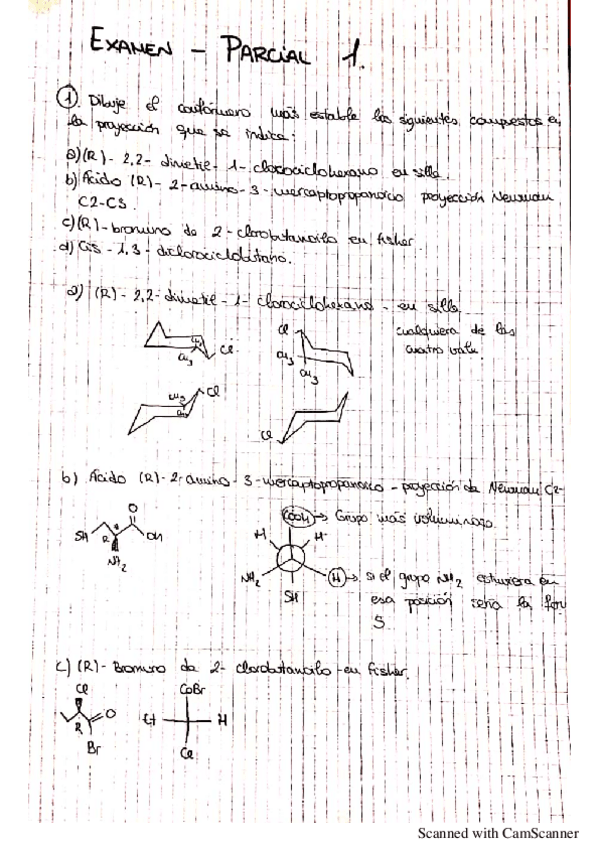 EXAMEN - PARCIAL 1.
① Dibuje el confórmero más estable los siguientes compuestos en
la proyección que se indica:
a) (R) - 2,2 - dimetil - 1 - clorociclohexano en silla.
b) Ácido (R) - 2 - amino - 3 - mercaptopropanoico proyección Newman
C2-C3.
c) (R) - bromuro de 2 - clorobutanoilo en fisher.
d) Cis - 1,3 - diclorociclobutano.
a) (R) - 2,2 - dimetil - 1 - clorociclohexano - en silla.
cualquiera de las
cuatro vale.
CH3
CH3
Cl
Cl
CH3
CH3
CH3
Cl
Cl
b) Ácido (R) - 2 - amino - 3 - mercaptopropanoico - proyección de Newman C2-
O
SH
R
*
OH
NH2
COOH → Grupo más voluminoso.
H
H
NH2
H → si el grupo NH2 estuviera en
esa posición sería la for
S.
SH
c) (R) - Bromuro de 2 - clorobutanoilo - en fisher.
Cl
O
R
Br
COBr
Et
H
Cl
Scanned with CamScanner